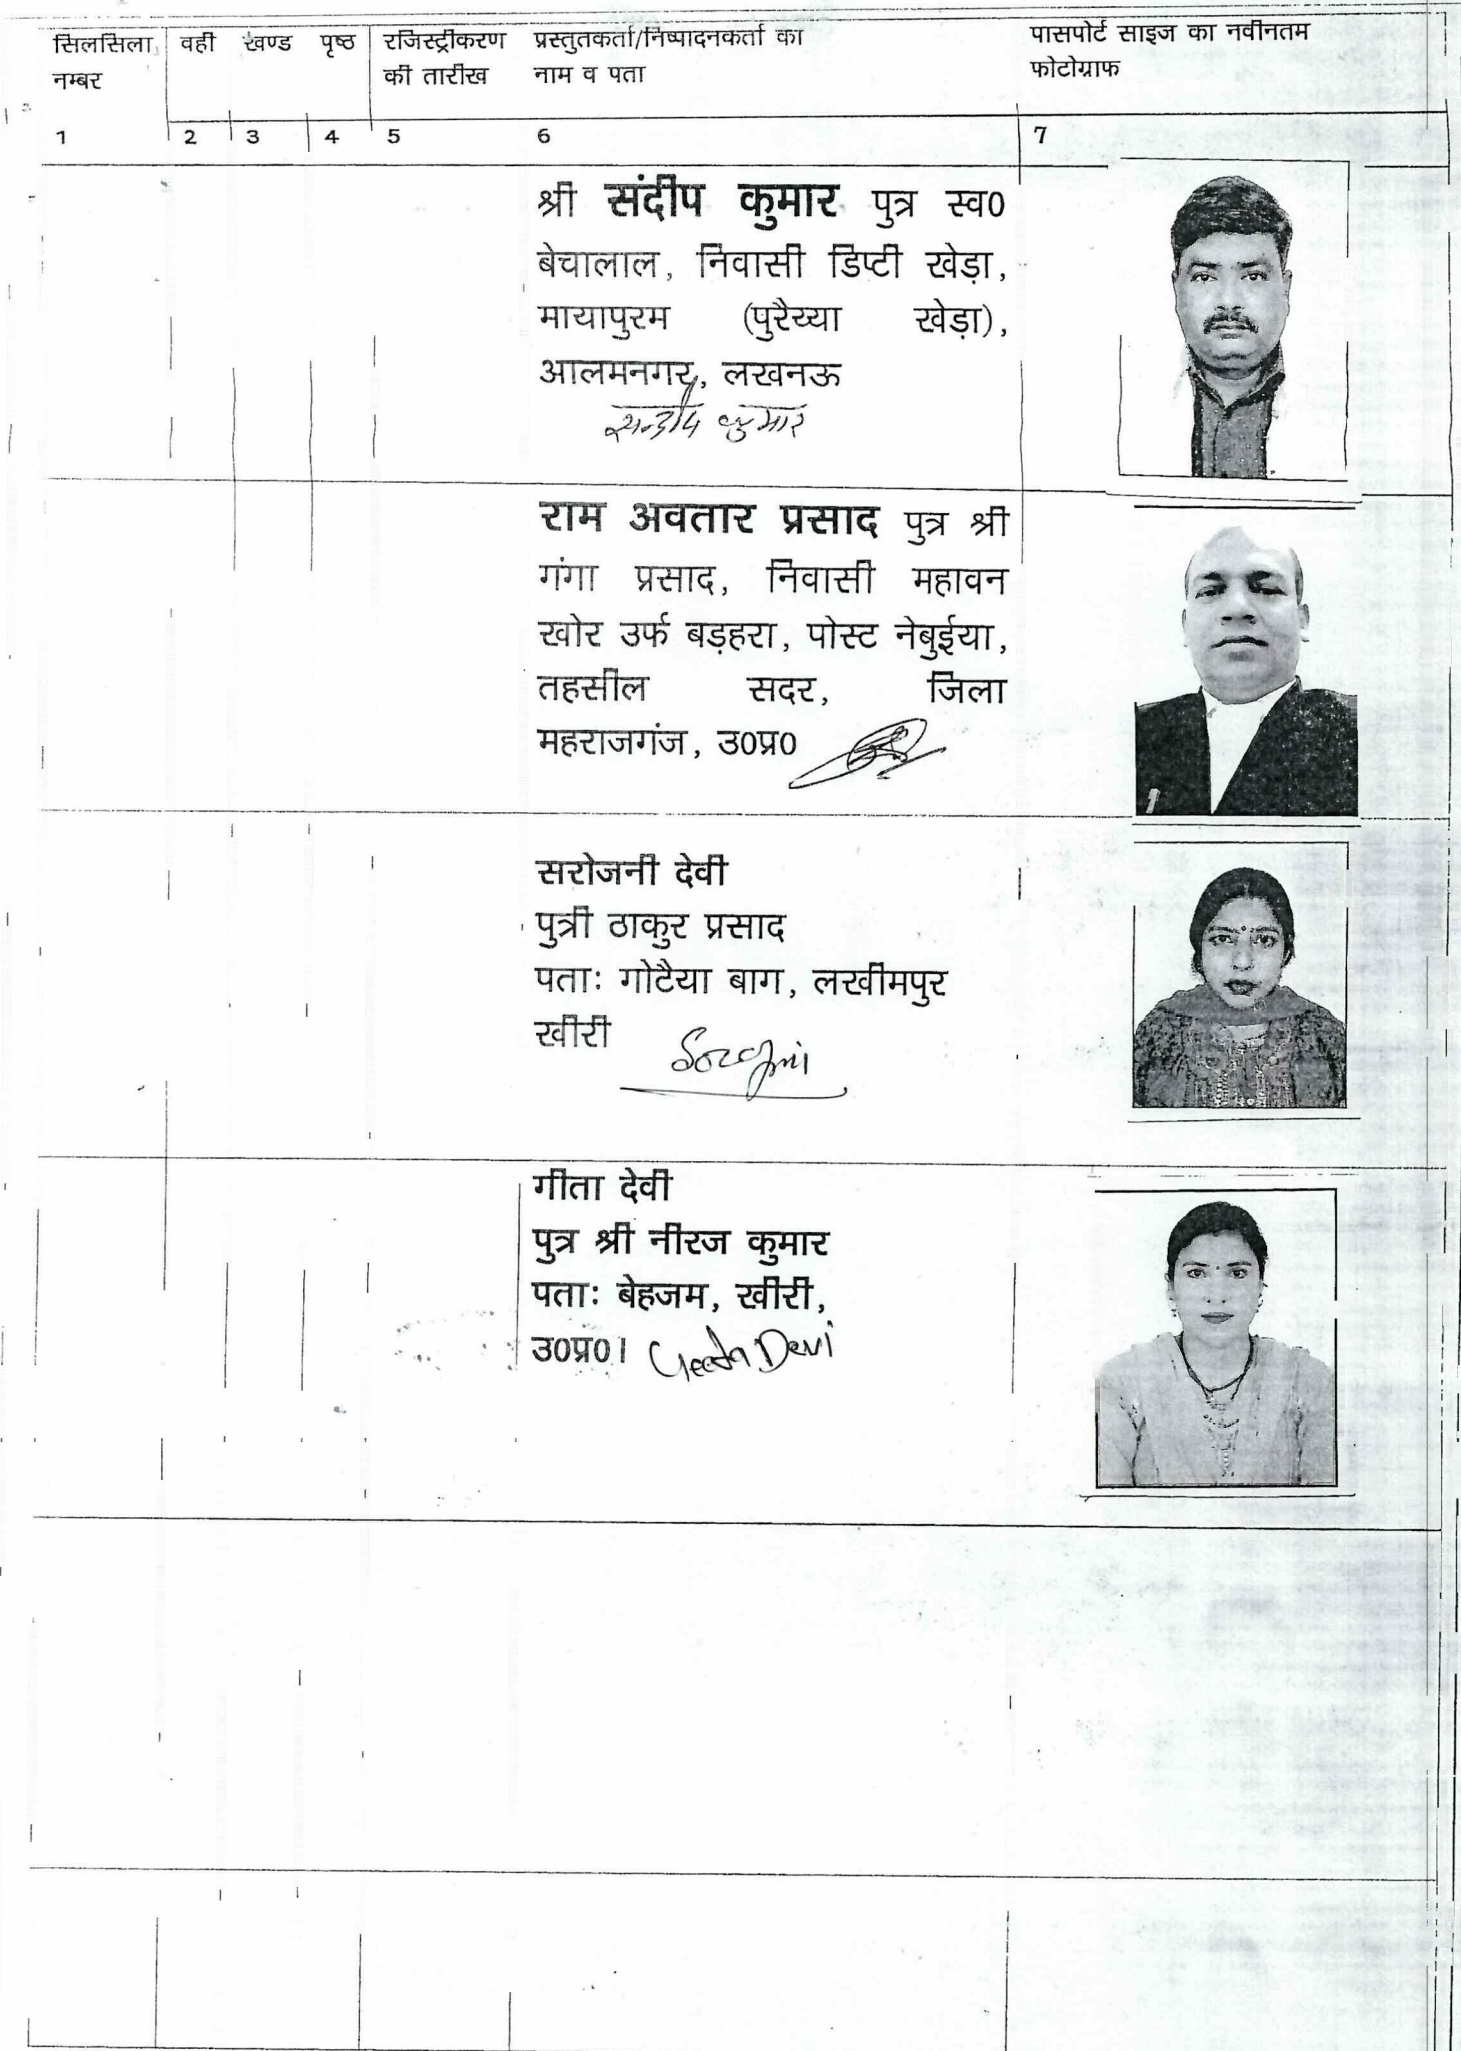 सिलसिला वही खण्ड पृष्ठ रजिस्ट्रीकरण प्रस्तुतकर्ता/निष्पादनकर्ता का पासपोर्ट साइज का नवीनतम
नम्बर की तारीख नाम व पता फोटोग्राफ
1 2 3 4 5 6 7
श्री संदीप कुमार पुत्र स्व0
बेचालाल, निवासी डिप्टी खेड़ा,
मायापुरम (पुरैय्या खेड़ा),
आलमनगर, लखनऊ
सन्दीप कुमार
राम अवतार प्रसाद पुत्र श्री
गंगा प्रसाद, निवासी महावन
खोर उर्फ बड़हरा, पोस्ट नेबुईया,
तहसील सदर, जिला
महराजगंज, उ0प्र0
सरोजनी देवी
पुत्री ठाकुर प्रसाद
पताः गोटैया बाग, लखीमपुर
खीरी
Sarojni
गीता देवी
पुत्र श्री नीरज कुमार
पताः बेहजम, खीरी,
उ0प्र0। Geeta Devi